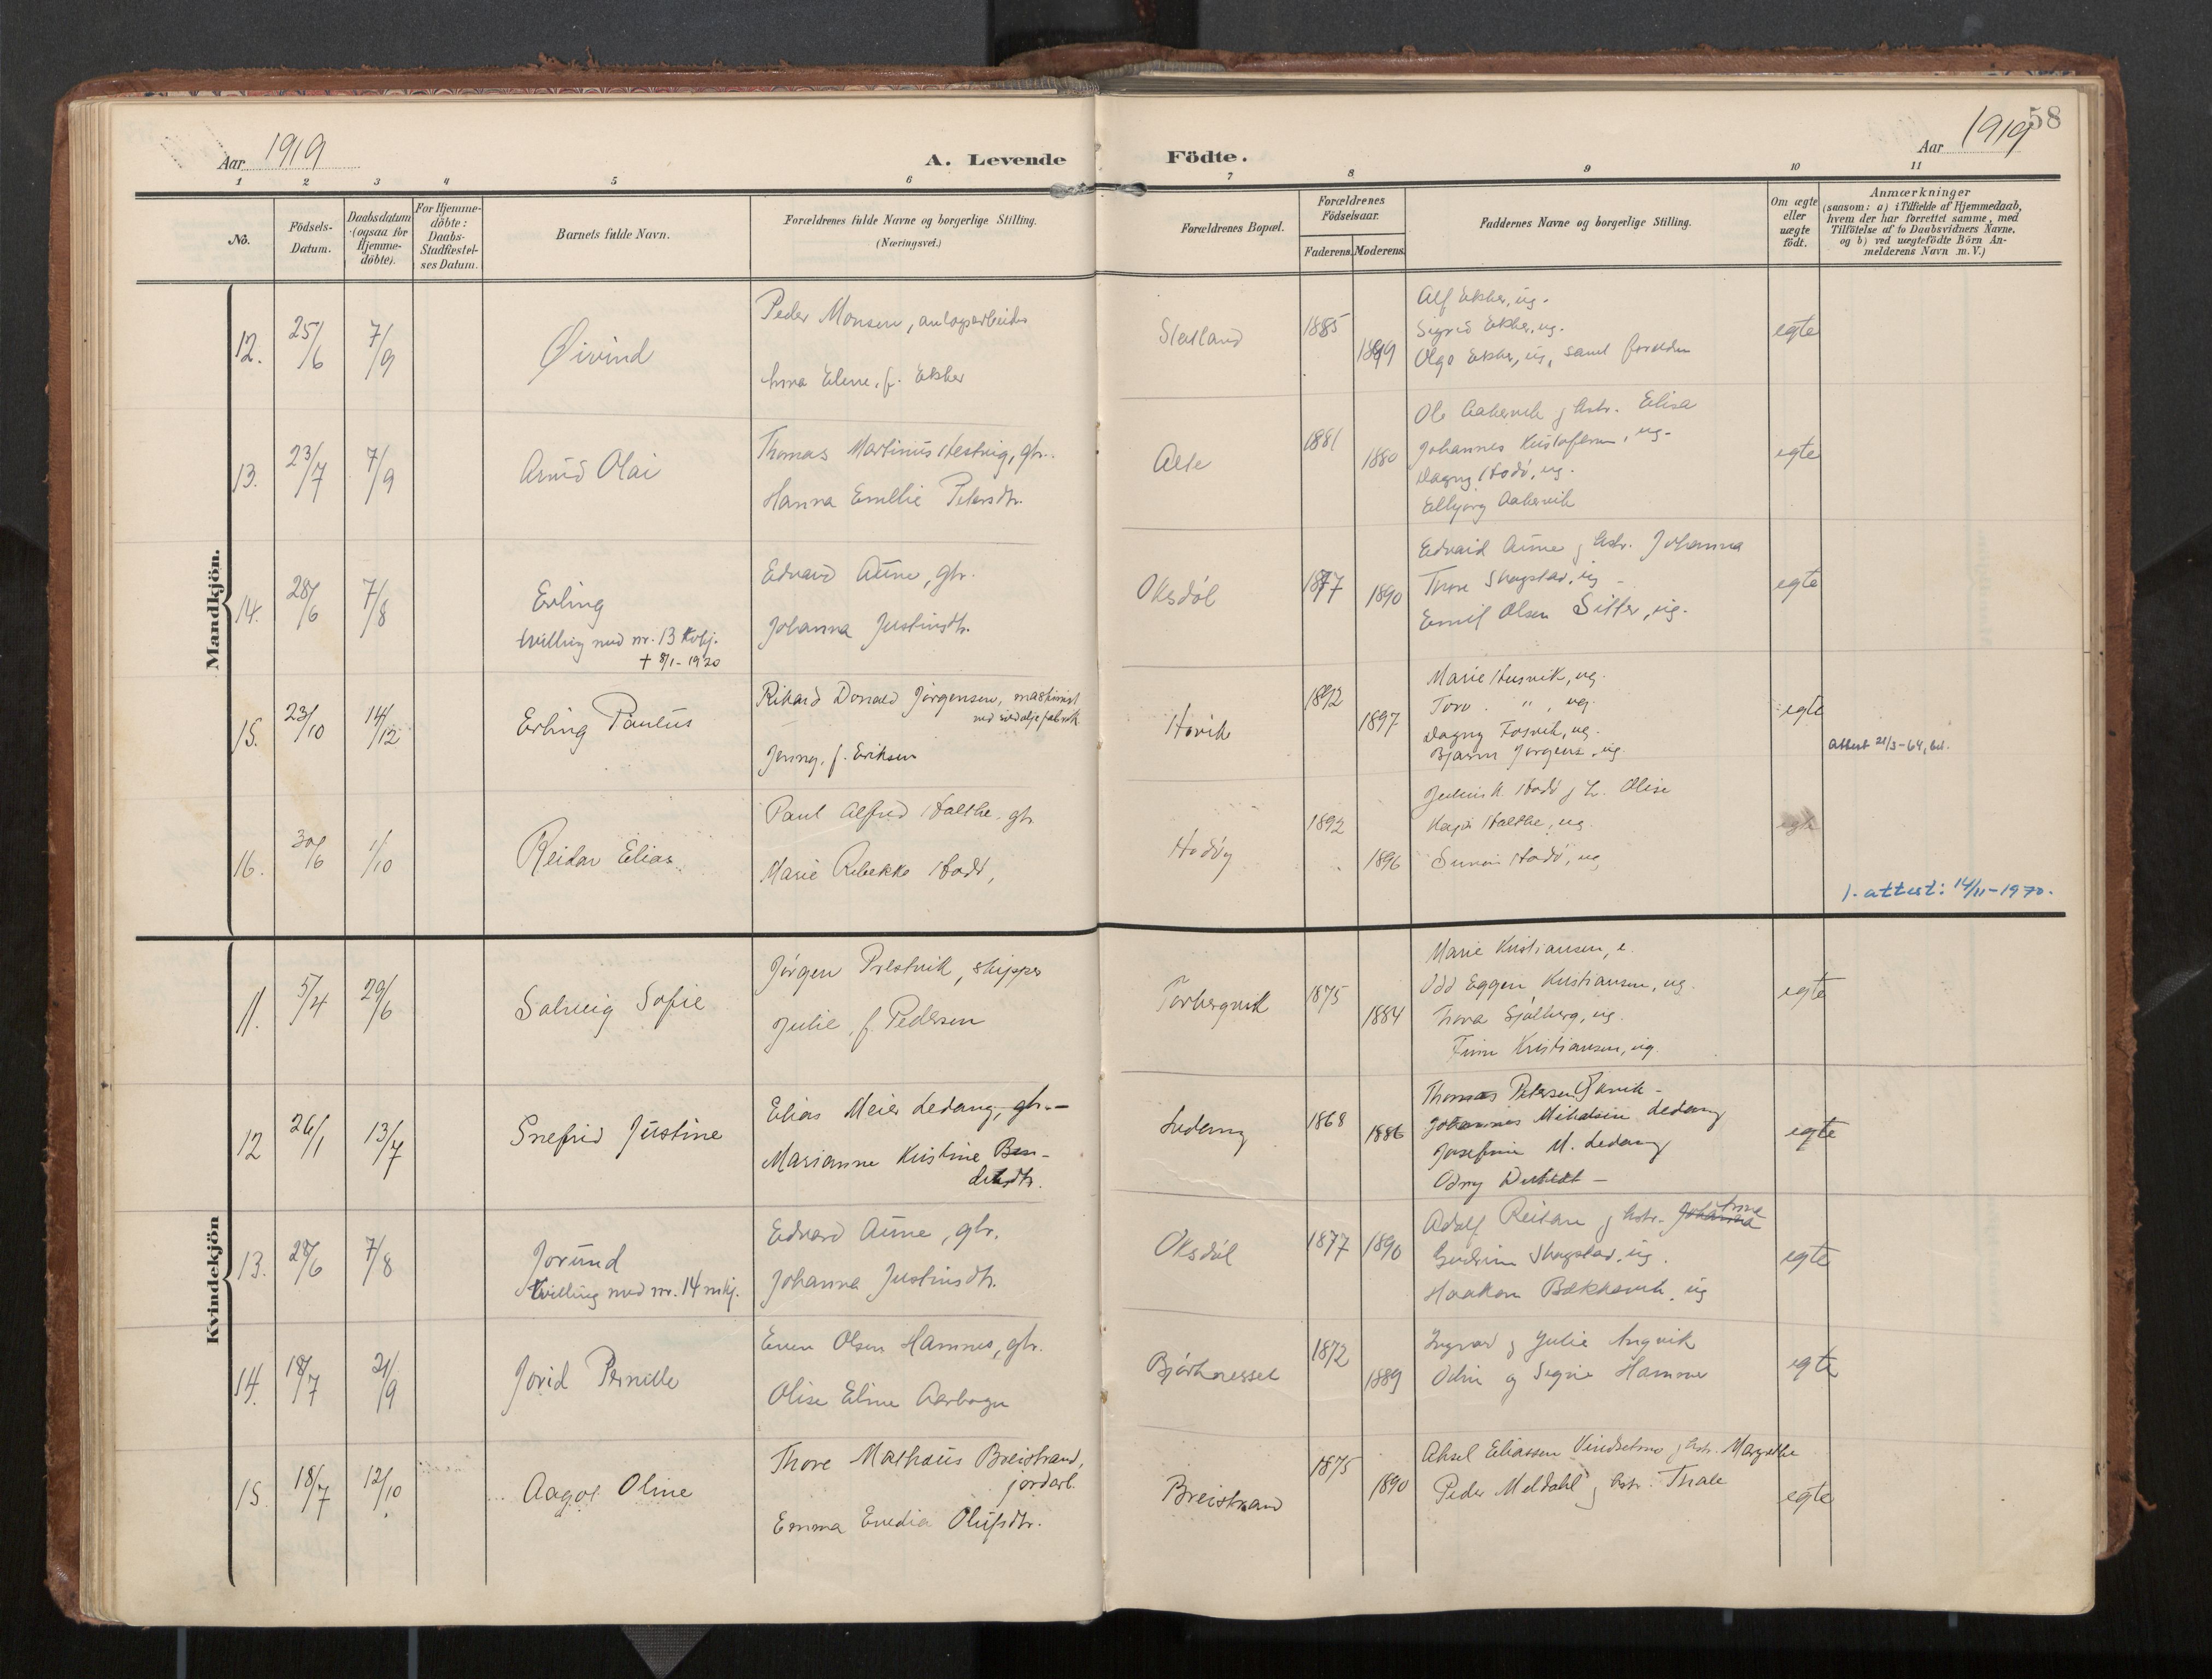 58
Aar 1919
A. Levende Födte.
Aar 1919
1 2 3 4 5 6 7 8 9 10 11
No.
Födsels-
Datum.
Daabsdatum
(ogsaa for
Hjemme-
döbte).
For Hjemme-
döbte:
Daabs-
Stadfæstel-
ses Datum.
Barnets fulde Navn.
Forældrenes fulde Navne og borgerlige Stilling.
(Næringsvei.)
Forældrenes Bopæl.
Forældrenes
Födselsaar.
Faderens. Moderens.
Faddernes Navne og borgerlige Stilling.
Om ægte
eller
uægte
födt.
Anmærkninger
(saasom: a) i Tilfælde af Hjemmedaab,
hvem der har forrettet samme, med
Tilföielse af to Daabsvidners Navne.
og b) ved uægtefödte Börn An-
melderens Navn m. V.)
Mandkjön.
12. 25/6 7/9 Øivind
Peder Monsen, anlagsarbeider
Elene, f. Ekker
1885
1889
Alf Ekker, ug.
Sigrid Ekker, ug.
Olga Ekker, ug, samt forældre
egte
13. 23/7 7/9 Arvid Olai
Thomas Martinus Hestvig, gbr.
Hanna Emilie Petersdtr.
1881
1880
Ole Aakervik og hstr. Elisa
Johannes Kristofersen, ug.
Dagny Hodø, ug.
Elbjørg Aakervik
egte
14. 28/6 7/8 Erling
tvilling med nr. 13 kvkj.
+ 8/1-1920
Edvard Aune, gbr.
Johanna Justinsdtr.
Oksdøl
1877
1890
Edvard Aune og hstr. Johanna
Thore Skogstad, ug
Emil Olsen Sitter, ug.
egte
15. 23/10 14/12 Erling Paulus
Rikard Donald Jørgensen, maskinist
ved sildoljefabrik
Jenny, f. Eriksen
Hovik
1892
1897
Marie Husvik, ug.
Tora " , ug.
Dagny Fosvik, ug.
Bjarne Jørgens. ug.
egte
Attest 21/3-64,
16. 30/6 1/10 Reidar Elias
Paul Alfred Halthe, gbr
Marie Rebekka Hodø,
Hodøy
1892
1896
Julius A. Hodø og h. Olise
Kaja Halthe, ug.
Hodø, ug
egte
1. attest: 14/11-1970.
Kvindekjön
11. 5/4 29/6 Solveig Sofie
Jørgen Prestvik, skipper
Julie, f. Pedersen
Torbergvik
1875
1884
Marie Kristiansen, e.
Odd Eggen Kristiansen, ug.
Thora Sjølberg, ug.
Finn Kristiansen, ug.
egte
12 26/1 13/7 Snefrid Justine
Elias Meier Ledang, gbr.
Marianne Kristine Ben-
diksdtr.
Ledang
1868
1886
Thomas Petersen
Johannes Mikalsen Ledang
Josefine M. Ledang
Odny
egte
13. 28/6 7/8 Jorund
tvilling med nr. 14 mkj.
Edvard Aune, gbr.
Johanna Justinsdtr.
Oksdøl
1877 1890
Adolf Reitan og hstr. Johanna
Gudrun Skogstad, ug.
Haakon Bakkevik, ug
egte
14. 18/7 21/9 Jorid Pernille
Even Olsen Hamnes, gbr.
Olise Eline Aarbogen
Bjørhnesset
1872
1889
Ingvar og Julie Angvik
Odin og Signe Hamnes
egte
15. 18/7 12/10 Aagot Oline
Thore Mathæus Breistrand,
jordarb.
Emma Enedia Olufsdtr.
Breistrand
1875
1890
Aksel Eliassen Vindsetmo og hstr. Margrethe
Peder Meldahl og hstr. Thale
egte